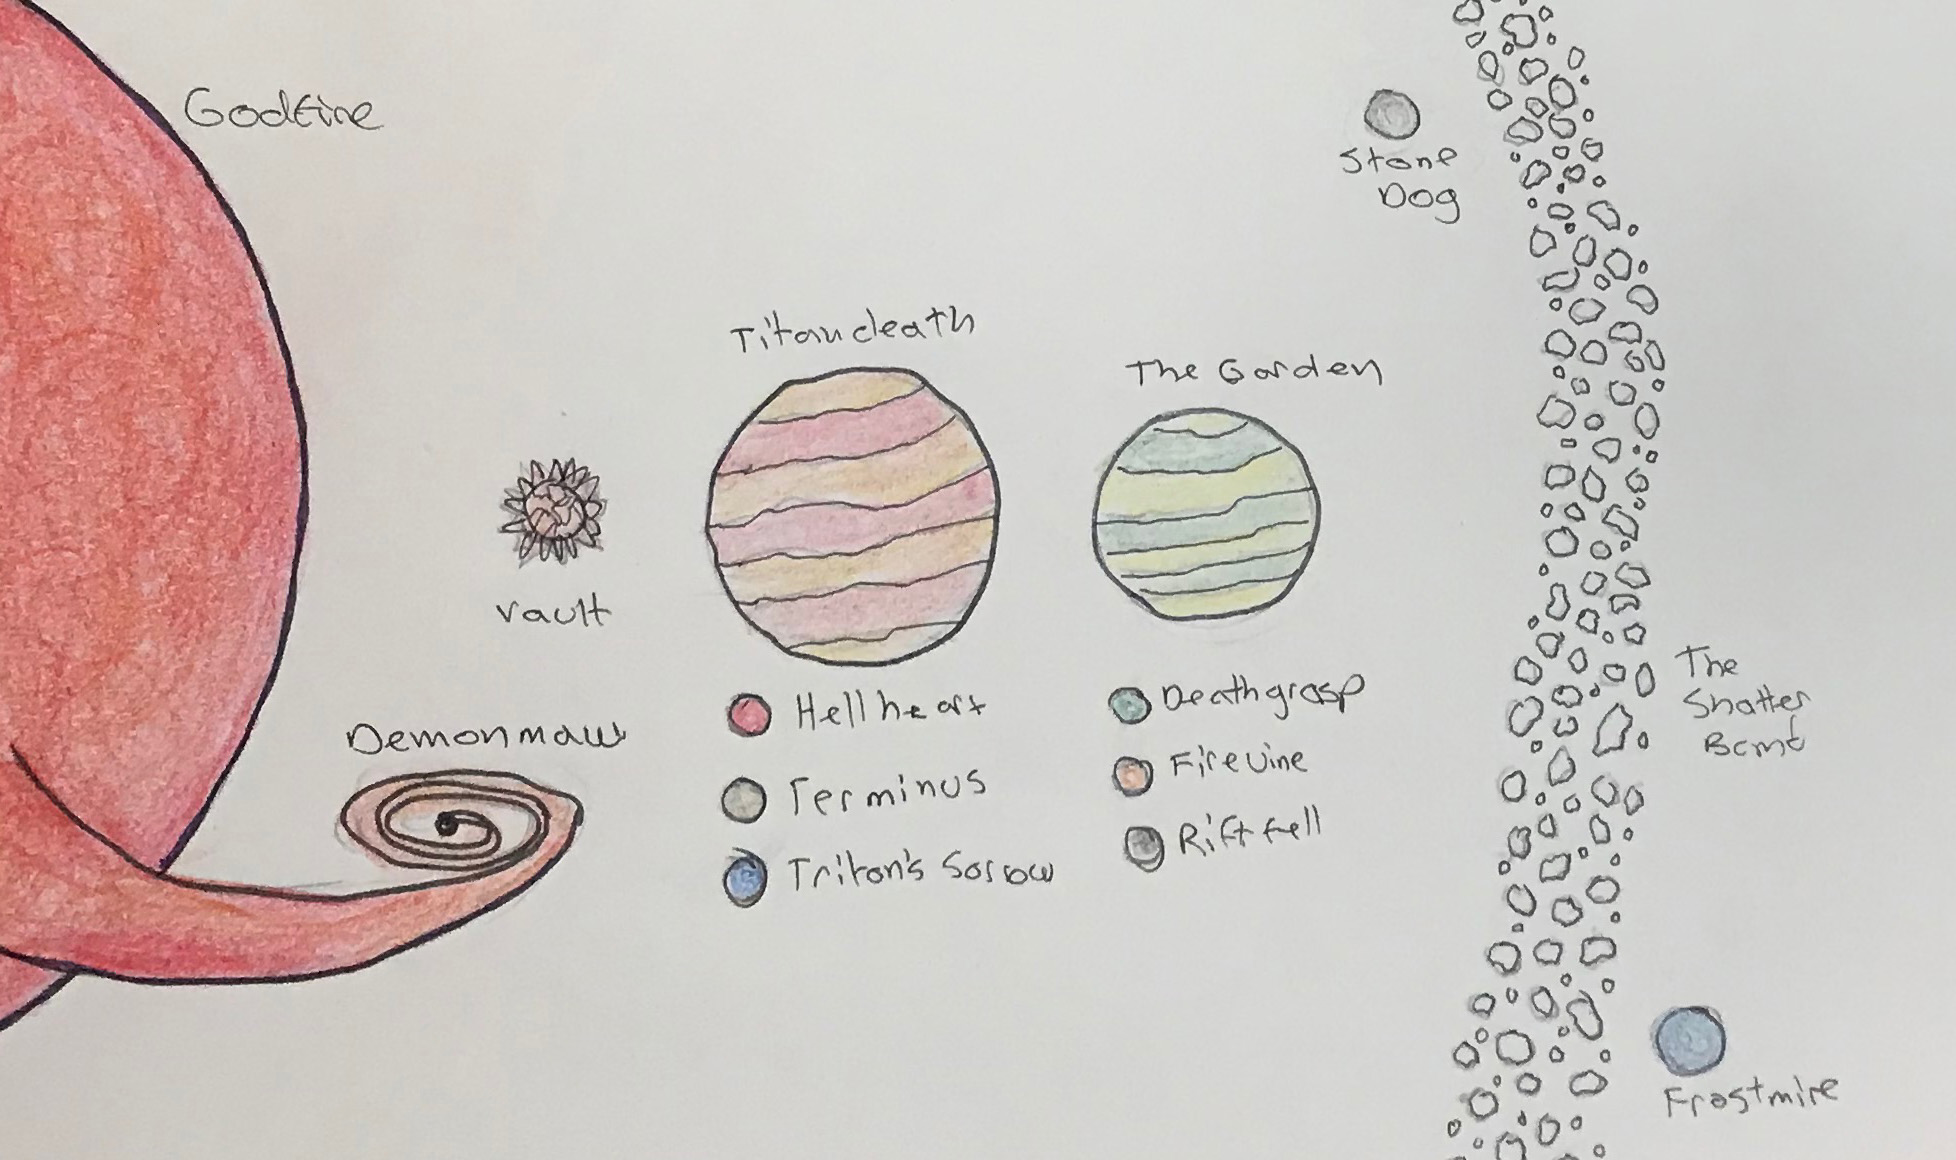 Godfire
Stone
Dog
Titandeath
The Garden
Vault
The
Shatter
Hellheart
Deathgrasp
Demonmaw
Firevine
Terminus
Riftfell
Triton's Sorrow
Frostmire